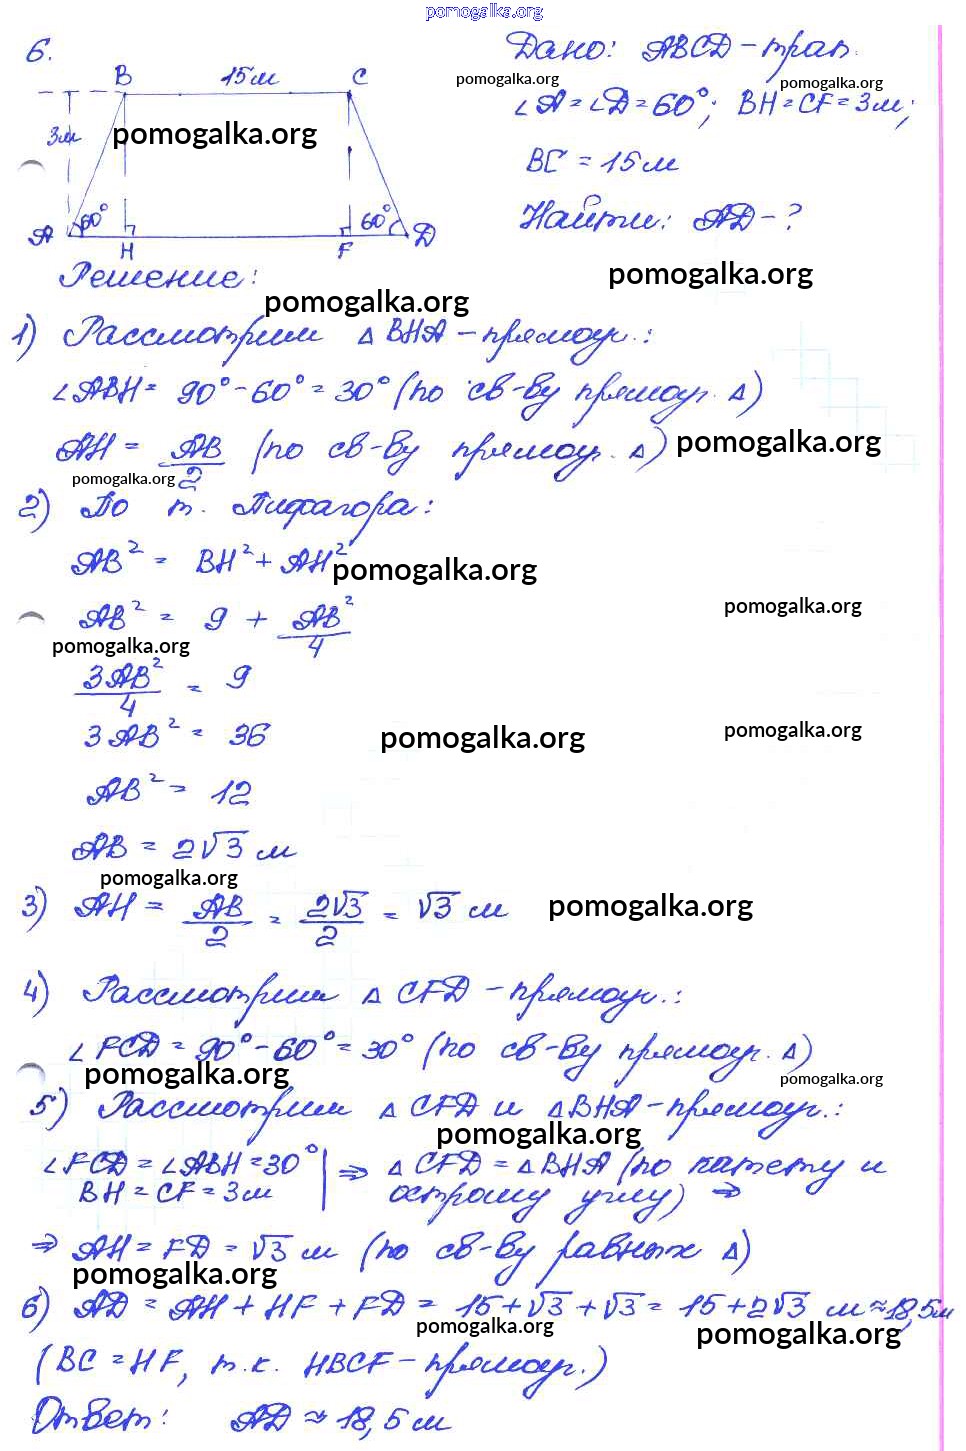 pomogalka.org
6.
Дано: ABCD - трап.
pomogalka.org pomogalka.org
B 15м C
∠A = ∠D = 60°; BH = CF = 3м;
3м pomogalka.org
BC = 15 м
A 60° H F 60° D
Найти: AD - ?
Решение:
pomogalka.org
pomogalka.org
1) Рассмотрим △ BHA - прямоуг.:
∠ABH = 90° - 60° = 30° (по св-ву прямоуг. △)
AH = AB/2 (по св-ву прямоуг. △) pomogalka.org
pomogalka.org
2) По т. Пифагора:
AB² = BH² + AH²
pomogalka.org
AB² = 9 + AB²/4
pomogalka.org
pomogalka.org
3AB²/4 = 9
3AB² = 36
pomogalka.org pomogalka.org
AB² = 12
AB = 2√3 м
pomogalka.org
3) AH = AB/2 = 2√3/2 = √3 м pomogalka.org
4) Рассмотрим △ CFD - прямоуг.:
∠FCD = 90° - 60° = 30° (по св-ву прямоуг. △)
pomogalka.org pomogalka.org
5) Рассмотрим △ CFD и △BHA - прямоуг.:
pomogalka.org
∠FCD = ∠ABH = 30° | ⇒ △ CFD = △ BHA (по катету и
BH = CF = 3м | острому углу) ⇒
⇒ AH = FD = √3 м (по св-ву равных △)
pomogalka.org
6) AD = AH + HF + FD = 15 + √3 + √3 = 15 + 2√3 м ≈ 18,5м
pomogalka.org pomogalka.org
(BC = HF, т.к. HBCF - прямоуг.)
Ответ: AD ≈ 18,5 м